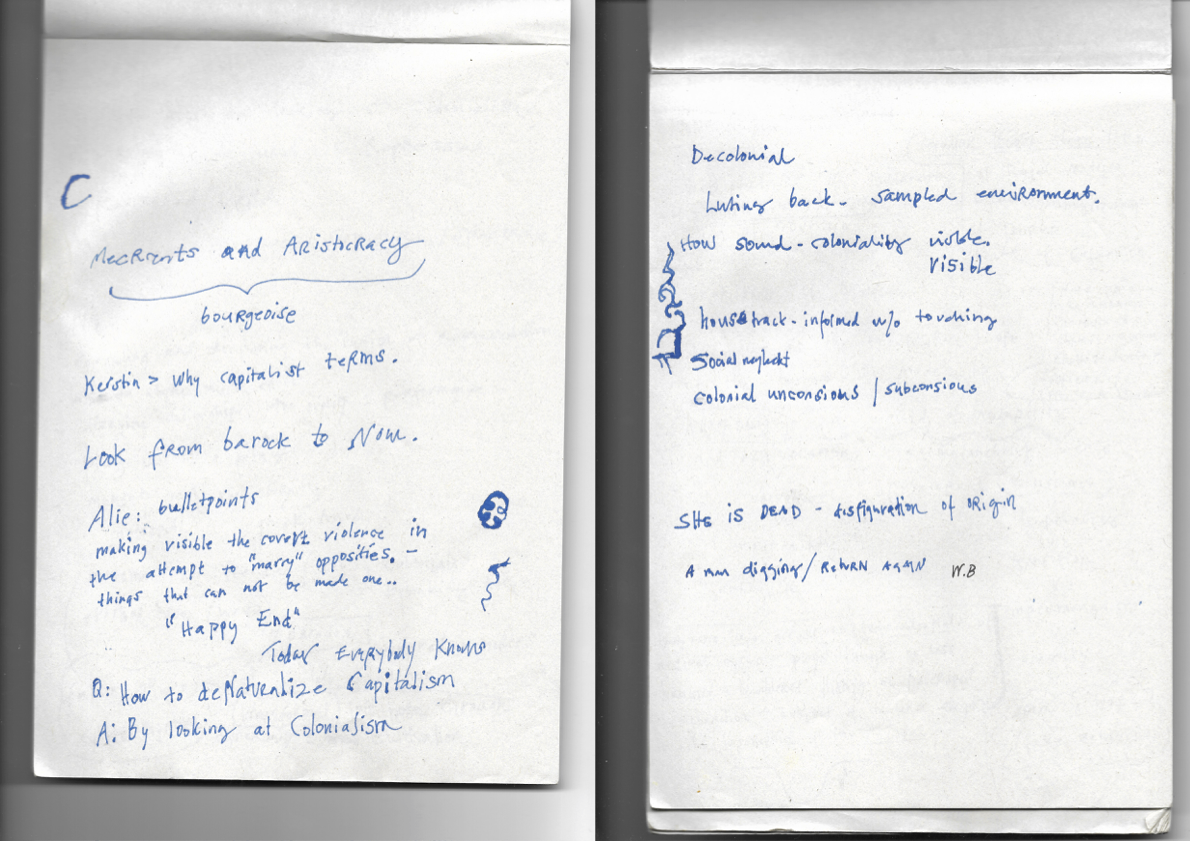 C
Mecrents and Aristocracy
bourgeoise
Kerstin > Why capitalist terms.
Look from barock to Now.
Alie: bulletpoints
making visible the covert violence in
the attempt to "marry" opposities. -
things that can not be made one..
"Happy End"
Today Everybody Knows
Q: How to deNaturalize Capitalism
A: By looking at Colonialism
Decolonial
back - sampled environment.
How sound - coloniality visible.
visible
track - informed w/o touching
Social neglect
colonial unconsious / subconsious
SHE is DEAD - disfiguration of origin
A man digging / Return Again W.B